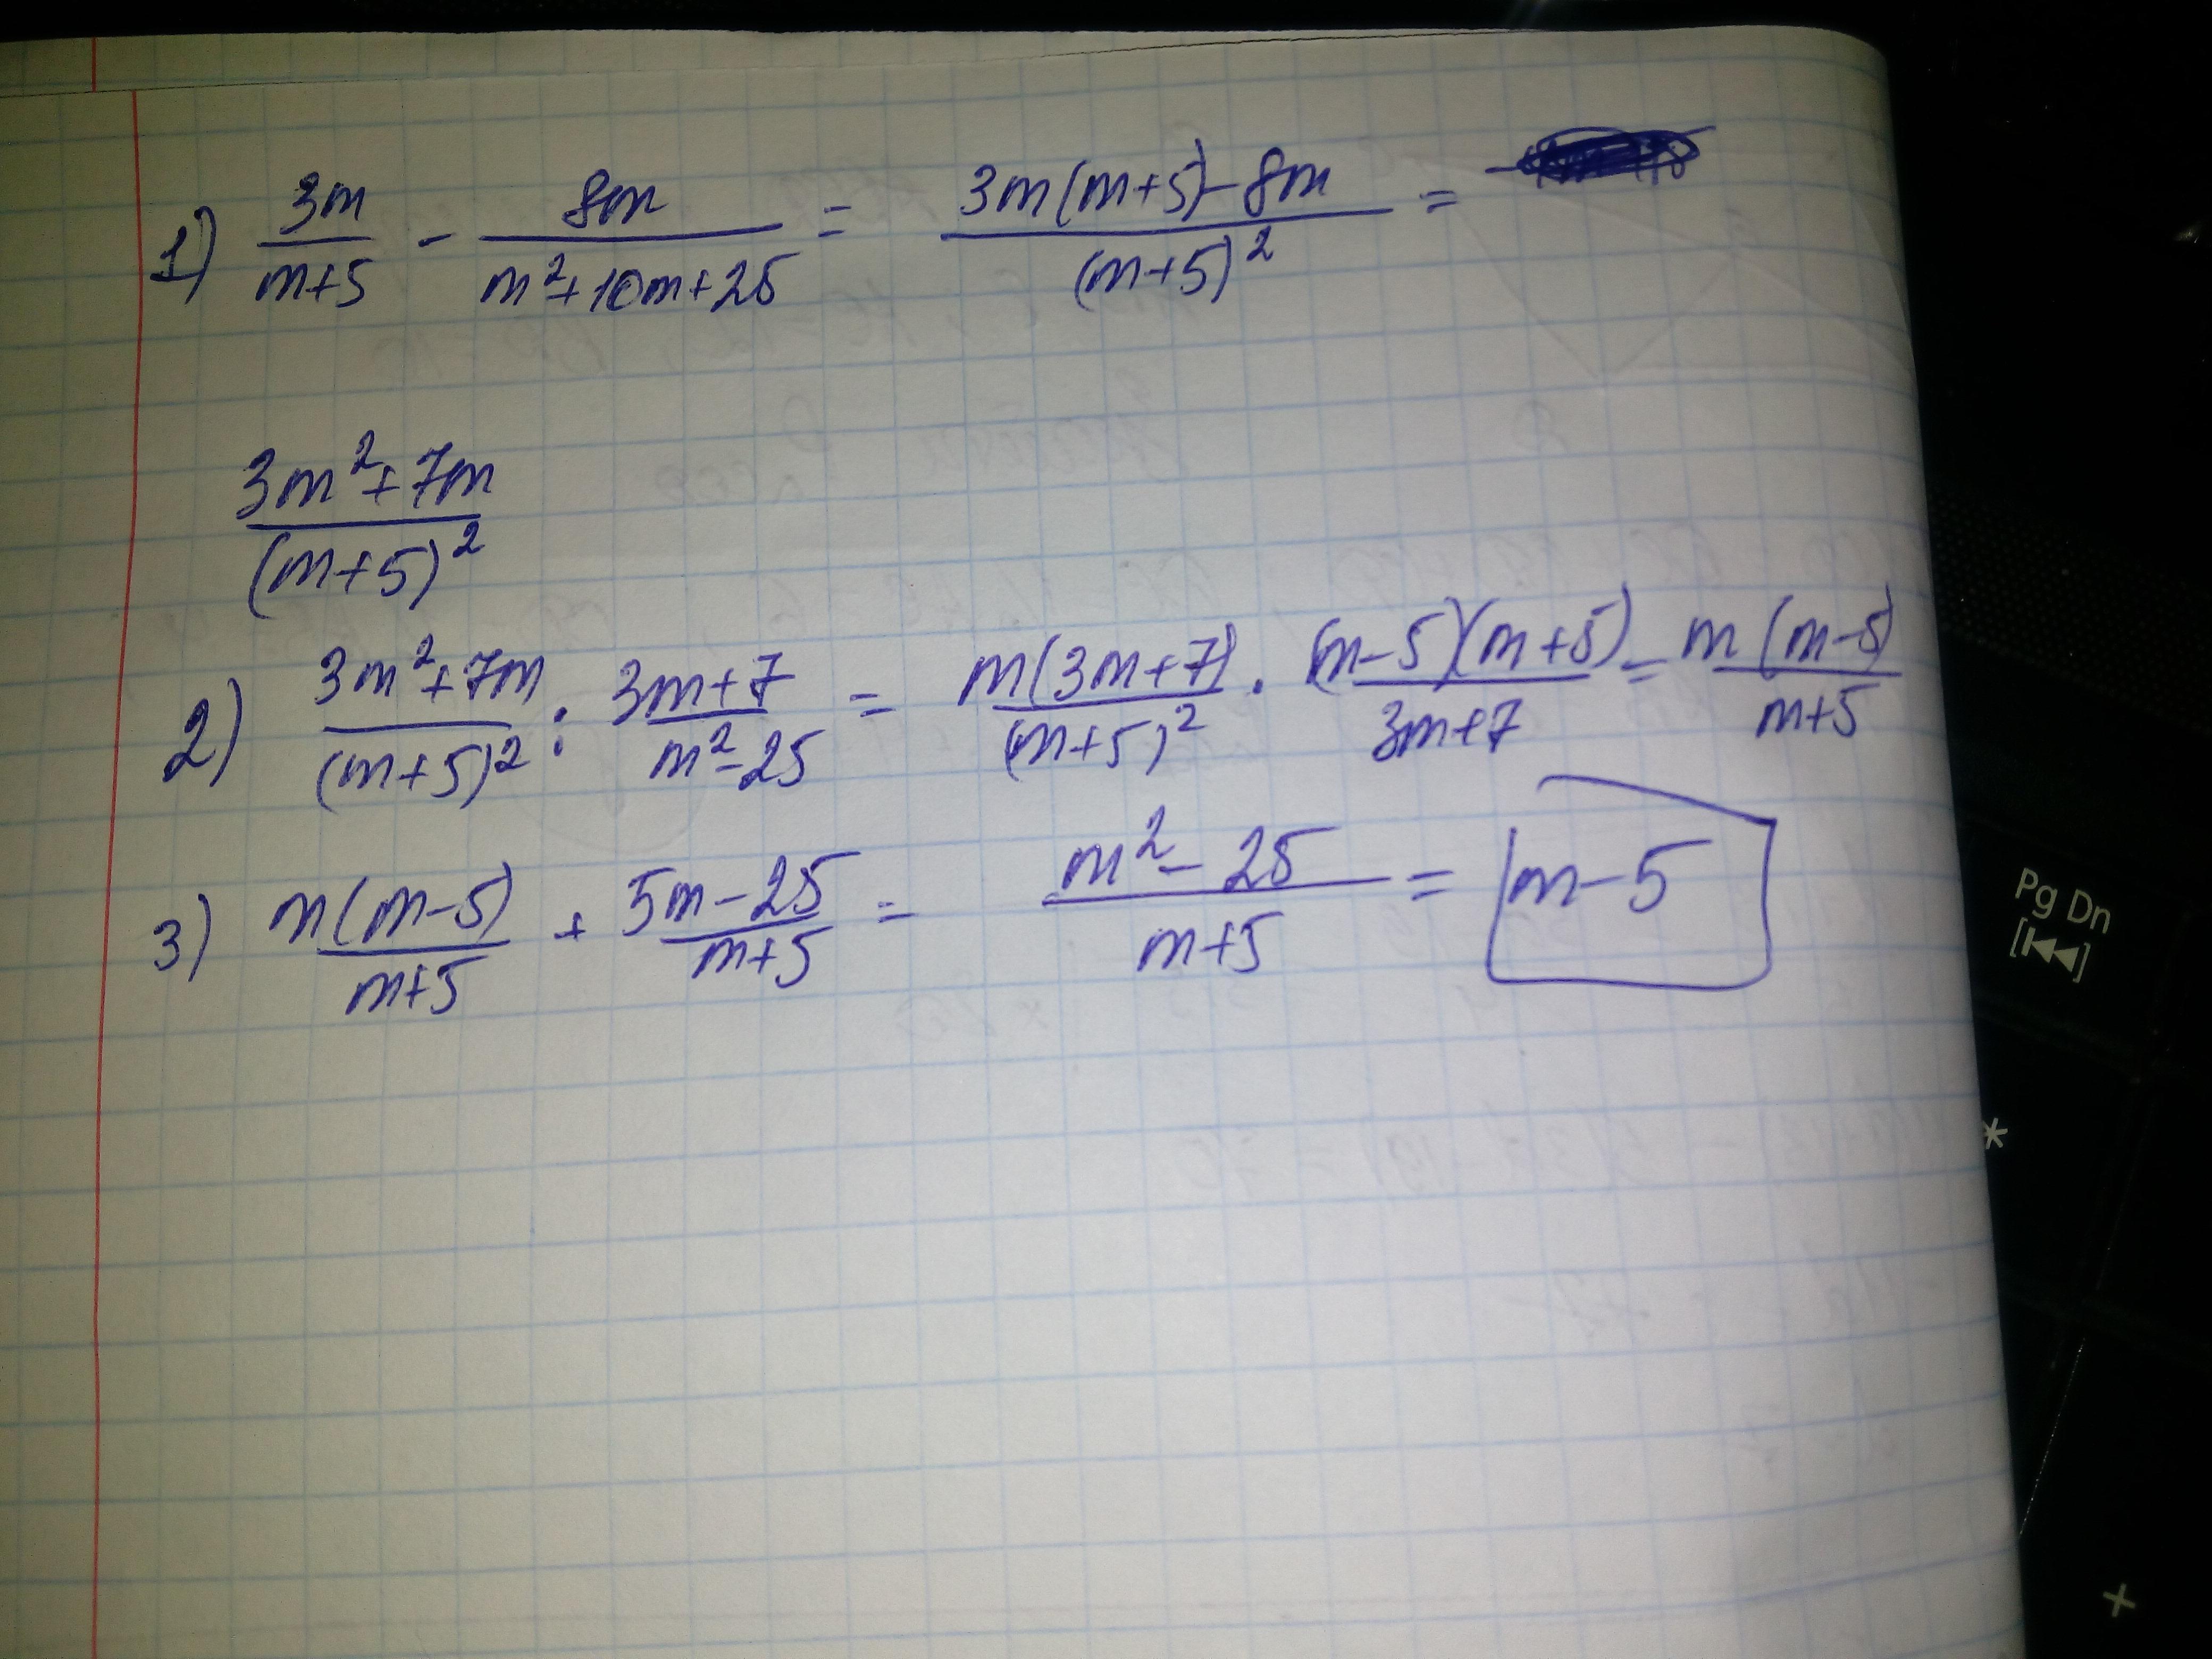 1) 3m/(m+5) - 8m/(m²+10m+25) = (3m(m+5)-8m)/(m+5)² =
(3m²+7m)/(m+5)²
2) (3m²+7m)/(m+5)² : (3m+7)/(m²-25) = m(3m+7)/(m+5)² · (m-5)(m+5)/(3m+7) = m(m-5)/(m+5)
3) m(m-5)/(m+5) + (5m-25)/(m+5) = (m²-25)/(m+5) = m-5
Pg Dn
[⏮]
*
+